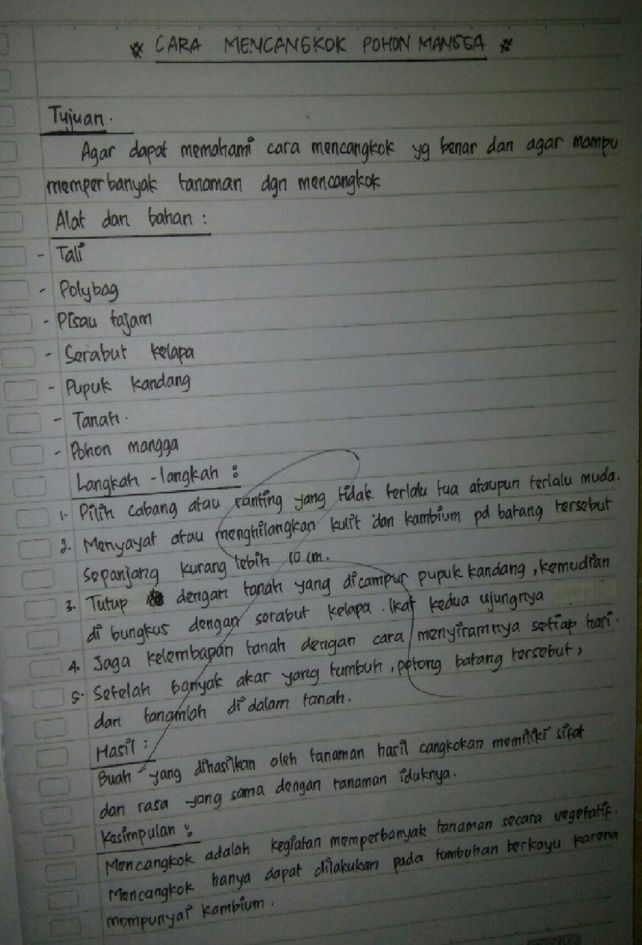 * CARA MENCANGKOK POHON MANGGA *
Tujuan.
Agar dapat memahami cara mencangkok yg benar dan agar mampu
memperbanyak tanaman dgn mencangkok
Alat dan bahan :
- Tali
- Polybag
- Pisau tajam
- Serabut kelapa
- Pupuk kandang
- Tanah.
- Pohon mangga
Langkah - langkah :
1. Pilih cabang atau ranting yang tidak terlalu tua ataupun terlalu muda.
2. Menyayat atau menghilangkan kulit dan kambium pd batang tersebut
sepanjang kurang lebih 10 cm.
3. Tutup dengan tanah yang dicampur pupuk kandang, kemudian
di bungkus dengan serabut kelapa. Ikat kedua ujungnya
4. Jaga kelembapan tanah dengan cara menyiramnya setiap hari.
5. Setelah banyak akar yang tumbuh, potong batang tersebut,
dan tanamlah di dalam tanah.
Hasil :
Buah yang dihasilkan oleh tanaman hasil cangkokan memiliki sifat
dan rasa yang sama dengan tanaman iduknya.
Kesimpulan :
Mencangkok adalah kegiatan memperbanyak tanaman secara vegetatif.
Mencangkok hanya dapat dilakukan pada tumbuhan berkayu karena
mempunyai kambium.